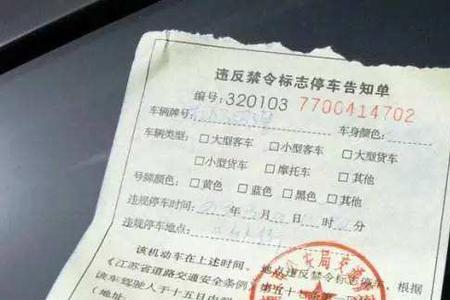 违反禁令标志停车告知单
编号:320103 7700414702
车辆牌号: 车身颜色:
车辆类型: □大型客车 □小型客车 □大型货车
□小型货车 □摩托车 □其他
号牌颜色: □黄色 □蓝色 □黑色 □其他
违规停车时间: 年 月 日 时 分
违规停车地点:
该机动车在上述时间、地点违反禁令标志停车,根据
《江苏省道路交通安全条例》第五十
该车驾驶人于十五日内到
(地址:
公安局交